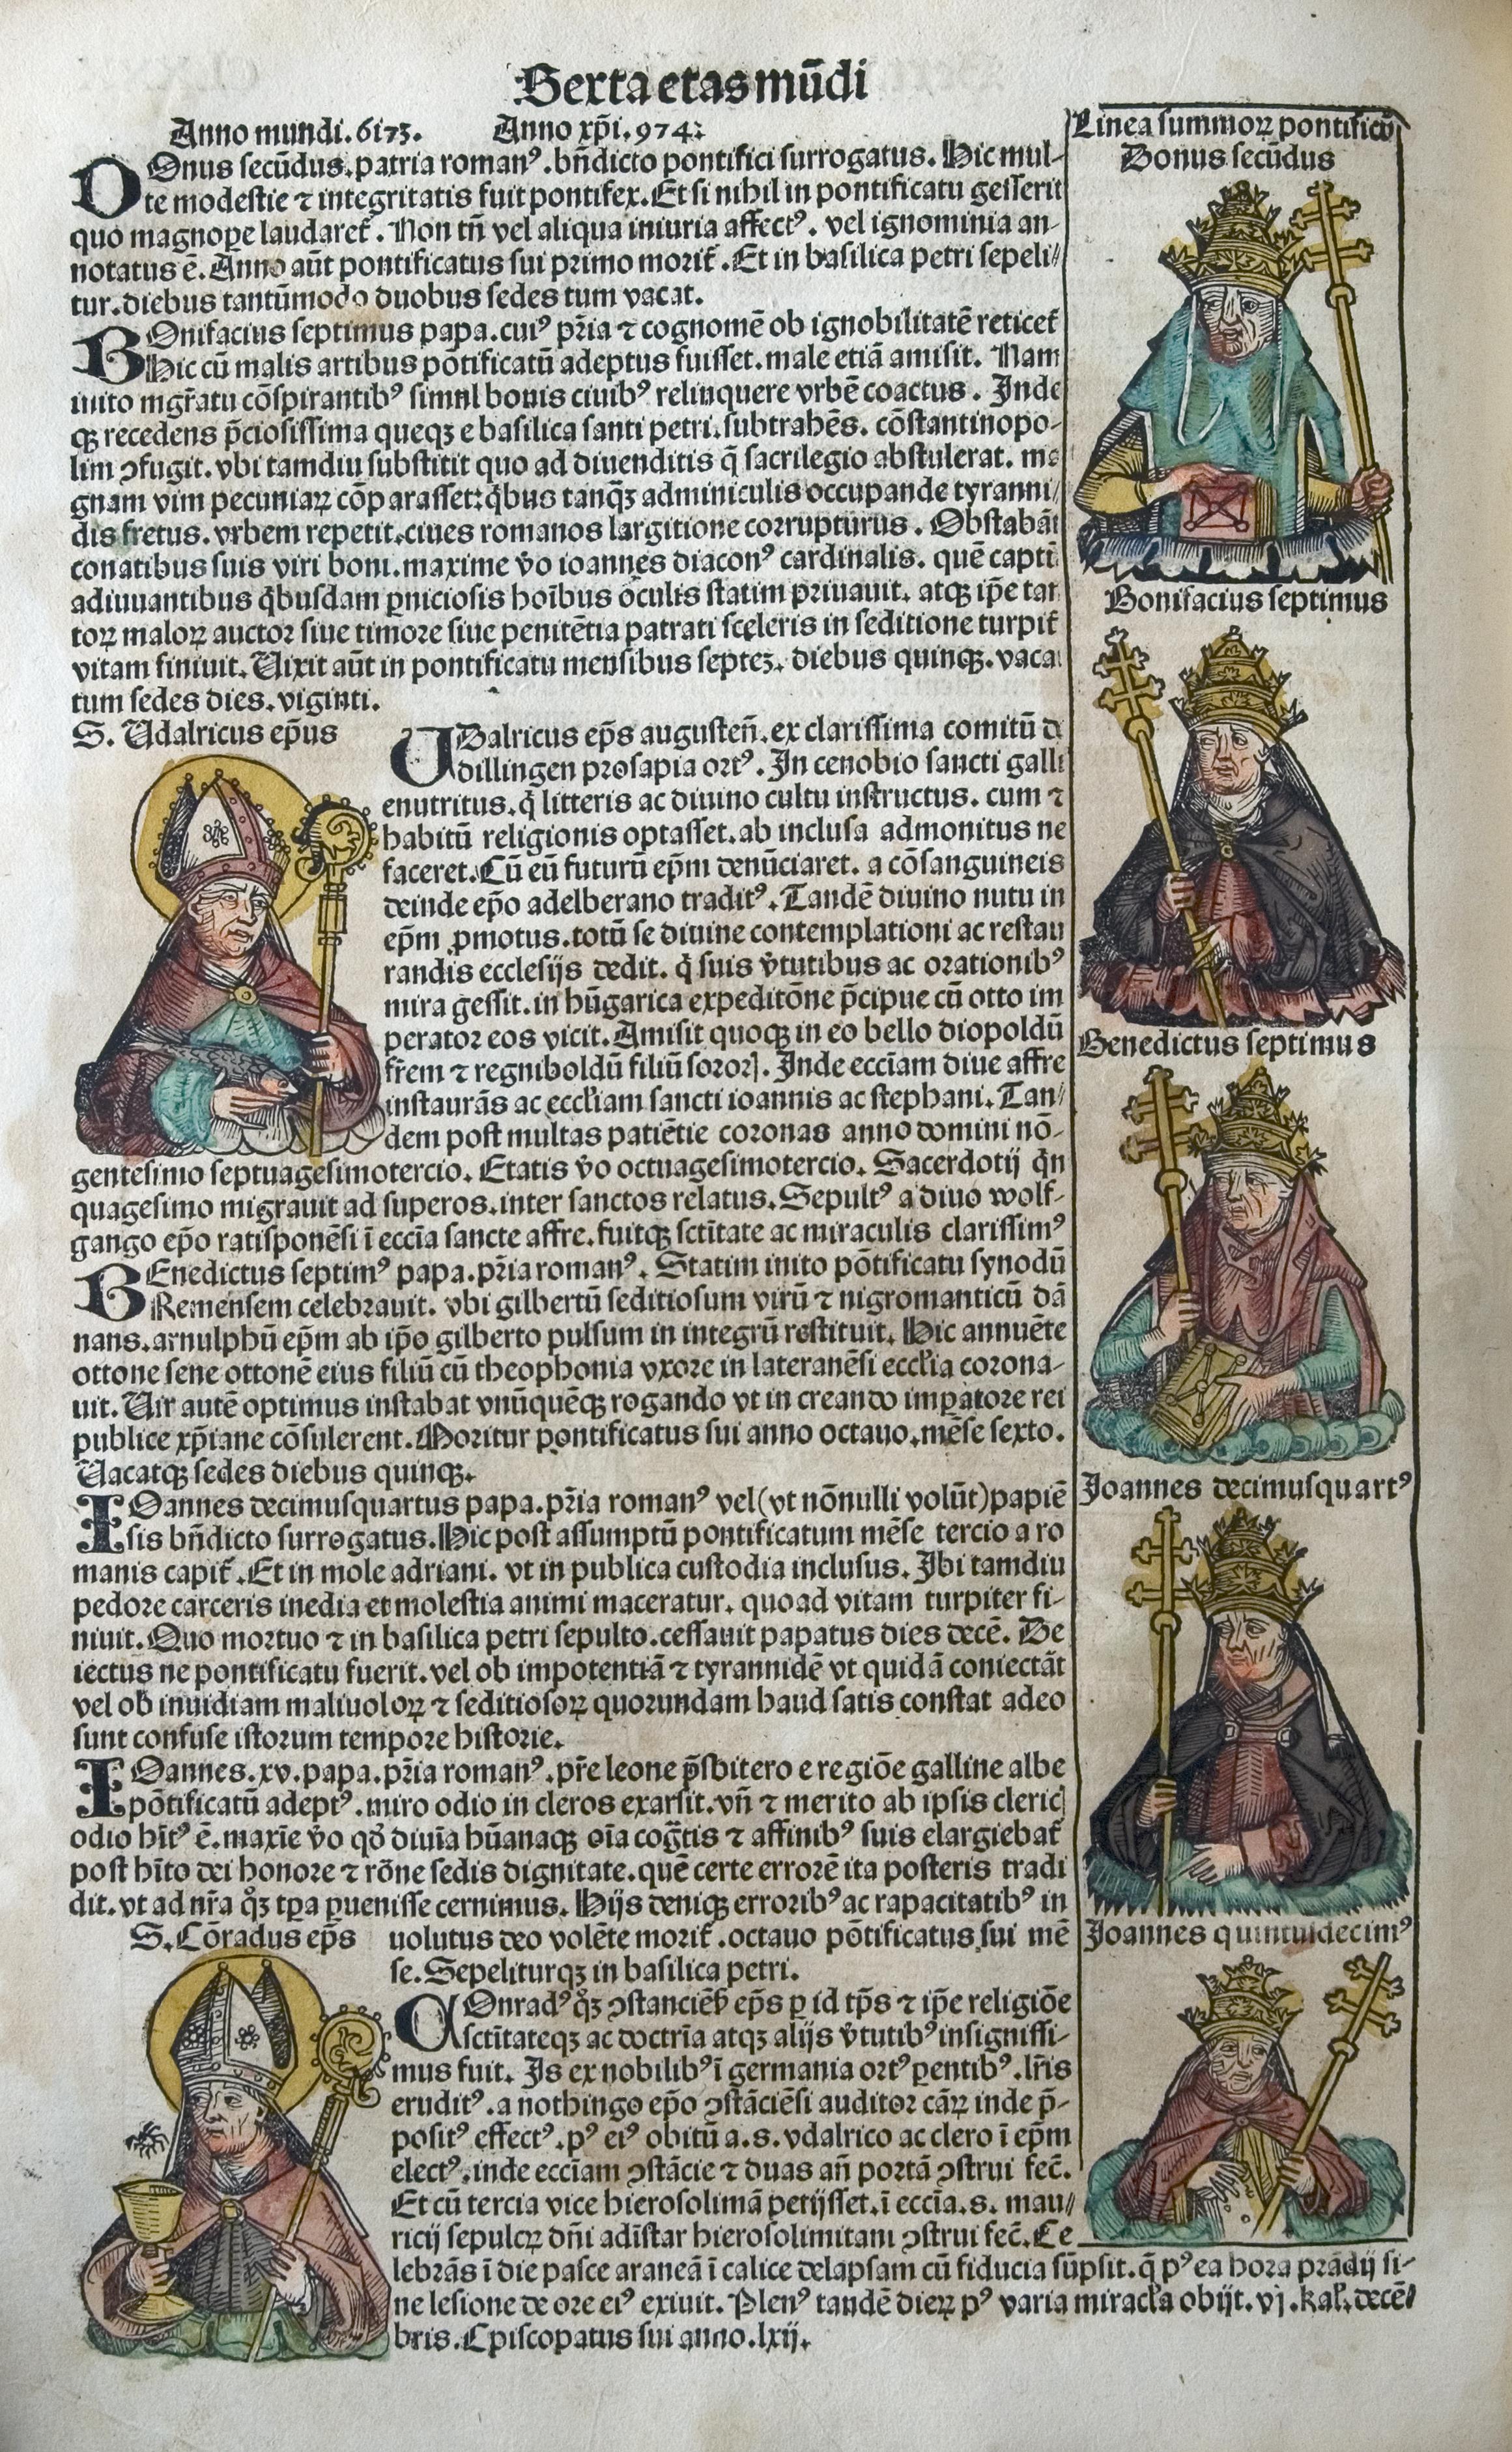 Sexta etas mũdi
Anno mundi .6173. Anno xp̃i .974.
DOnus secũdus. patria romanꝰ. bñdicto pontifici surrogatus. Hic mul-
te modestie ⁊ integritatis fuit pontifex. Et si nihil in pontificatu gesserit
quo magnope laudaret̃. Non tñ vel aliqua iniuria affectꝰ. vel ignominia an-
notatus ẽ. Anno aũt pontificatus sui primo morit̃. Et in basilica petri sepeli//
tur. diebus tantũmodo duobus sedes tum vacat.
BOnifacius septimus papa. cuiꝰ pr̃ia ⁊ cognomẽ ob ignobilitatẽ reticet̃
Hic cũ malis artibus põtificatũ adeptus fuisset. male etiã amisit. Nam
inito mgr̃atu cõspirantibꝰ simul bonis ciuibꝰ relinquere vrbẽ coactus. Inde
qꝫ recedens p̃ciosissima queqꝫ e basilica santi petri. subtrahẽs. cõstantinopo-
lim ꝯfugit. vbi tamdiu substitit quo ad diuenditis q̃ sacrilegio abstulerat. ma
gnam vim pecuniaꝝ cõparasset: q̃bus tanq̃ꝫ adminiculis occupande tyranni/
dis fretus. vrbem repetit. ciues romanos largitione corrupturus. Obstabãt
conatibus suis viri boni. maxime ṽo ioannes diaconꝰ cardinalis. quẽ captũ
adiuuantibus q̃busdam ꝑniciosis hoĩbus oculis statim priuauit. atqꝫ ip̃e tan
toꝝ maloꝝ auctor siue timore siue penitẽtia patrati sceleris in seditione turpit̃
vitam finiuit. Uixit aũt in pontificatu mensibus septeꝫ. diebus quinqꝫ. vaca
tum sedes dies. viginti.
S. Udalricus ep̃us
UDalricus ep̃s augusteñ. ex clarissima comitũ d
dillingen prosapia ortꝰ. In cenobio sancti galli
enutritus. q̃ litteris ac diuino cultu instructus. cum ⁊
habitũ religionis optasset. ab inclusa admonitus ne
faceret. Cũ eũ futurũ ep̃m denũciaret. a cõsanguineis
deinde ep̃o adelberano traditꝰ. Tandẽ diuino nutu in
ep̃m ꝓmotus. totũ se diuine contemplationi ac restau
randis ecclesijs dedit. q̃ suis ṽtutibus ac orationibꝰ
mira gessit. in hũgarica expeditõne p̃cipue cũ otto im
perator eos vicit. Amisit quoqꝫ in eo bello diopoldũ
fr̃em ⁊ regniboldũ filiũ sororꝭ. Inde ecciam diue affre
instaurãs ac eccl̃iam sancti ioannis ac stephani. Tan/
dem post multas patiẽtie coronas anno domini nõ-
gentesimo septuagesimotercio. Etatis ṽo octuagesimotercio. Sacerdotij q̃n
quagesimo migrauit ad superos. inter sanctos relatus. Sepultꝰ a diuo wolf-
gango ep̃o ratisponẽsi ĩ eccĩa sancte affre. fuitqꝫ sctĩtate ac miraculis clarissimꝰ
BEnedictus septimꝰ papa. pr̃ia romanꝰ. Statim inito põtificatu synodũ
Remensem celebrauit. vbi gilbertũ seditiosum virũ ⁊ nigromanticũ dã
nans. arnulphũ ep̃m ab ip̃o gilberto pulsum in integrũ restituit. Hic annuẽte
ottone sene ottonẽ eius filiũ cũ theophonia vxore in lateranẽsi eccl̃ia corona-
uit. Uir autẽ optimus instabat vnũquẽqꝫ rogando vt in creando imꝑatore rei
publice xp̃iane cõsulerent. Moritur pontificatus sui anno octauo. mẽse sexto.
Uacatqꝫ sedes diebus quinqꝫ.
IOannes decimusquartus papa. pr̃ia romanꝰ vel (vt nõnulli volũt) papiẽ
sis bñdicto surrogatus. Hic post assumptũ pontificatum mẽse tercio a ro
manis capit̃. Et in mole adriani. vt in publica custodia inclusus. Ibi tamdiu
pedore carceris inedia et molestia animi maceratur. quoad vitam turpiter fi-
niuit. Quo mortuo ⁊ in basilica petri sepulto. cessauit papatus dies decẽ. De
iectus ne pontificatu fuerit. vel ob impotentiã ⁊ tyrannidẽ vt quidã coniectãt
vel ob inuidiam maliuoloꝝ ⁊ seditiosoꝝ quorundam haud satis constat adeo
sunt confuse istorum tempore historie.
IOannes. xv. papa. pr̃ia romanꝰ. pr̃e leone p̃sbitero e regiõe galline albe
põtificatũ adeptꝰ. miro odio in cleros exarsit. vñ ⁊ merito ab ipsis clericꝭ
odio hĩtꝰ ẽ. maxĩe ṽo qd̃ diuĩa hũanaqꝫ oĩa cog̃tis ⁊ affinibꝰ suis elargiebat̃
post hĩto dei honore ⁊ rõne sedis dignitate. quẽ certe errorẽ ita posteris tradi
dit. vt ad nr̃a q̃ꝫ tꝑa ꝑuenisse cernimus. Hijs deniqꝫ erroribꝰ ac rapacitatibꝰ in
S. Cõradus ep̃s
uolutus deo volẽte morit̃. octauo põtificatus sui mẽ
se. Sepeliturqꝫ in basilica petri.
COnradꝰ q̃ꝫ ꝯstancieñ ep̃s ꝑ id tp̃s ⁊ ip̃e religiõe
sctĩtateqꝫ ac doctrĩa atqꝫ alijs ṽtutibꝰ insignissi-
mus fuit. Is ex nobilibꝰ ĩ germania ortꝰ ꝑentibꝰ. lr̃is
eruditꝰ. a nothingo ep̃o ꝯstãciẽsi auditor cãꝝ inde p̃-
positꝰ effectꝰ. pꝰ eiꝰ obitũ a. s. vdalrico ac clero ĩ ep̃m
electꝰ. inde ecciam ꝯstãcie ⁊ duas añ portã ꝯstrui fec̃.
Et cũ tercia vice hierosolimã petijsset. ĩ eccĩa. s. mau//
ricij sepulcꝝ dñi adĩstar hierosolimitani ꝯstrui fec̃. Ce
lebrãs ĩ die pasce araneã ĩ calice delapsam cũ fiducia sũpsit. q̃ pꝰ ea hora prãdij si-
ne lesione de ore eiꝰ exiuit. Plenꝰ tandẽ dieꝝ pꝰ varia miracl̃a obijt. vj. kal̃. decẽ/
bris. Episcopatus sui anno. lxij.
Linea summoꝝ pontificũ
Donus secũdus
Bonifacius septimus
Benedictus septimus
Joannes decimusquartꝰ
Joannes quintusdecimꝰ